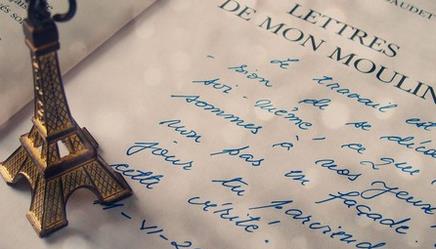 AUDET
LETTRES
DE MON MOULIN
Le travail est
sion de se déco
soi-même, ce que
sommes à nos yeux
non pas en façade
jour tu parviend
cette vérité.
-VI-2